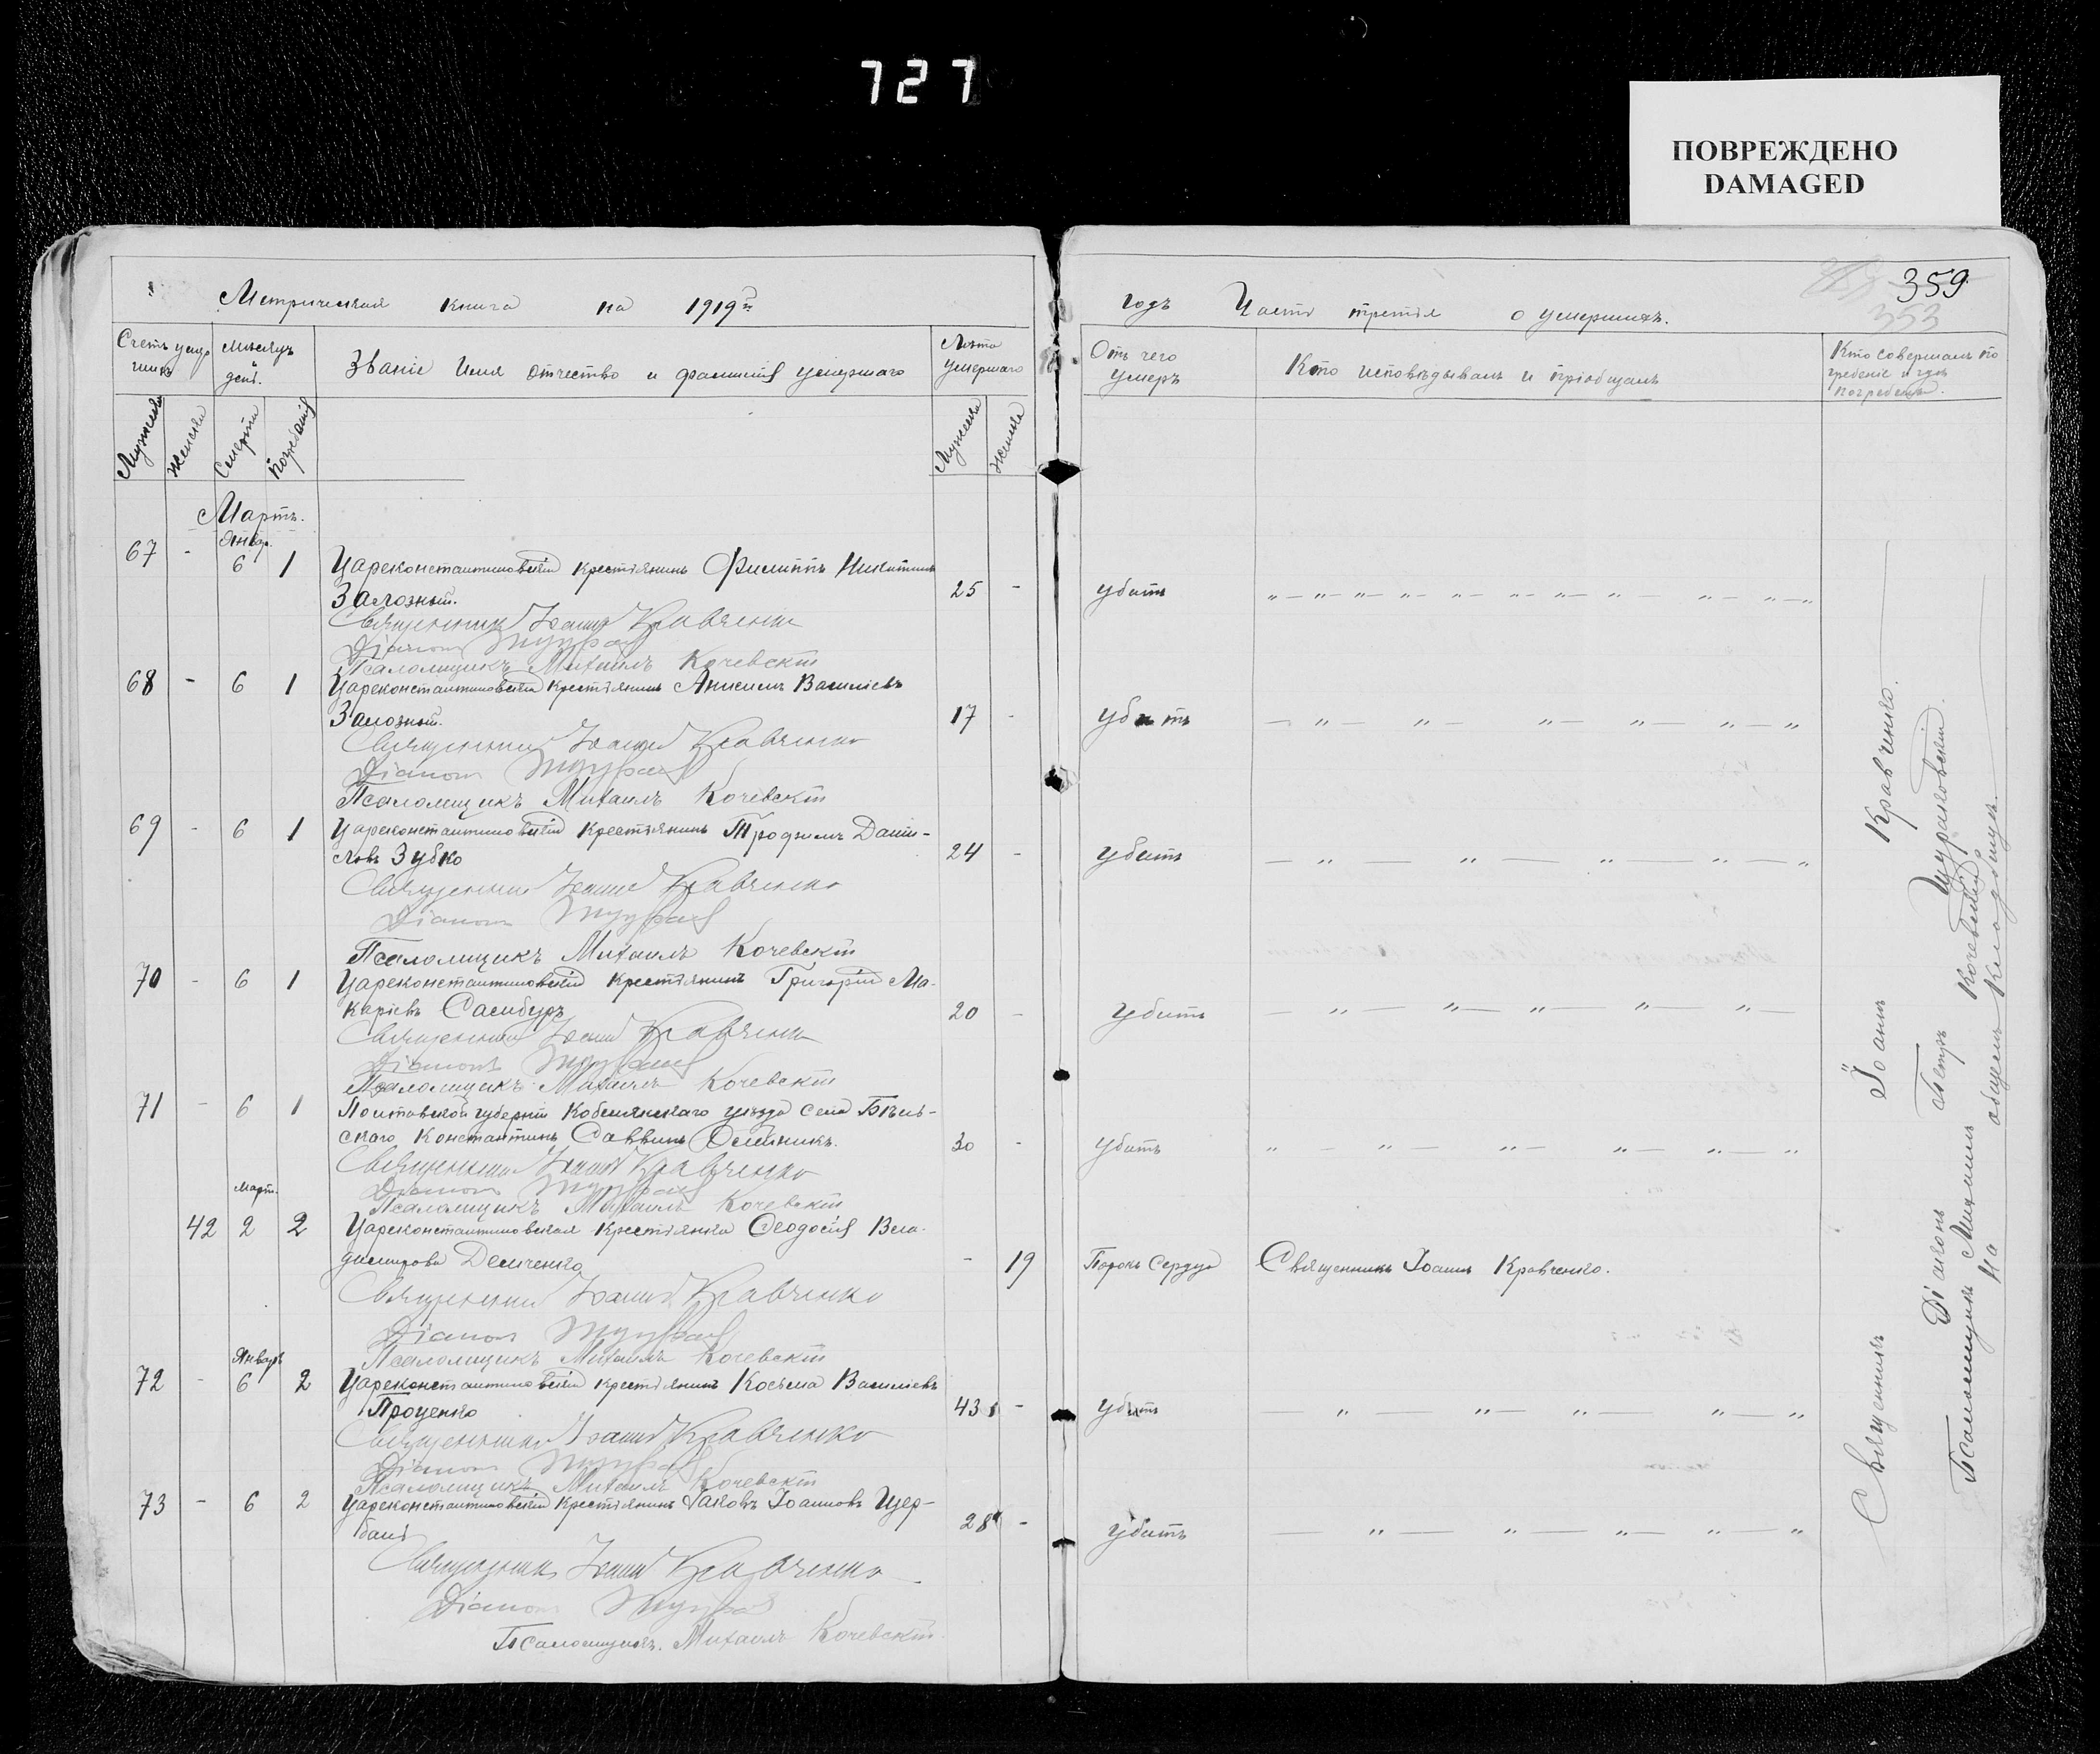 727
ПОВРЕЖДЕНО
DAMAGED
359
353
Метрическая книга на 1919й
годъ Часть третія о умершихъ.
Счетъ умершихъ
Мѣсяцъ и день.
Званіе Имя отчество и фамилія умершаго
Лѣта умершаго
Отъ чего умеръ
Кто исповѣдывалъ и пріобщалъ
Кто совершалъ по
гребеніе и гдѣ
погребены.
Мужеска
Женска
Смерти
Погребенія
Мужеска
Женска
Мартъ.
Январ.
67 - 6 1 Цареконстантиновскій крестьянинъ Филиппъ Никитинъ
Залозный. 25 - убитъ
Священникъ Іоаннъ Кравченко
Діаконъ
Псаломщикъ Михаилъ Кочевскій
68 - 6 1 Цареконстантиновскій крестьянинъ Анисимъ Васильевъ
Залозный. 17 - убитъ
Священникъ Іоаннъ Кравченко
Діаконъ
Псаломщикъ Михаилъ Кочевскій
69 - 6 1 Цареконстантиновскій крестьянинъ Трофимъ Дани-
ловъ Зубко 24 - убитъ
Священникъ Іоаннъ Кравченко
Діаконъ
Псаломщикъ Михаилъ Кочевскій
70 - 6 1 Цареконстантиновскій крестьянинъ Григорій Ма-
каріевъ Самбуръ 20 - убитъ
Священникъ Іоаннъ Кравченко
Діаконъ
Псаломщикъ Михаилъ Кочевскій
71 - 6 1 Полтавской губерніи Кобелякскаго уѣзда села Бѣль-
скаго Константинъ Саввинъ Олейникъ. 30 - убитъ
Священникъ Іоаннъ Кравченко
Діаконъ
Псаломщикъ Михаилъ Кочевскій
Март.
42 2 2 Цареконстантиновская крестьянка Ѳеодосія Вла-
димирова Демченко - 19 Порокъ сердца Священникъ Іоаннъ Кравченко.
Священникъ Іоаннъ Кравченко
Діаконъ
Псаломщикъ Михаилъ Кочевскій
Январь
72 - 6 2 Цареконстантиновскій крестьянинъ Косьма Васильевъ
Проценко 43 - убитъ
Священникъ Іоаннъ Кравченко
Діаконъ
Псаломщикъ Михаилъ Кочевскій
73 - 6 2 Цареконстантиновскій крестьянинъ Іаковъ Іоанновъ Щер-
бань 28 - убитъ
Священникъ Іоаннъ Кравченко
Діаконъ
Псаломщикъ. Михаилъ Кочевскій.
Священникъ Іоаннъ Кравченко.
Діаконъ Петръ
Псаломщикъ Михаилъ Кочевскій
на общемъ кладбищѣ.